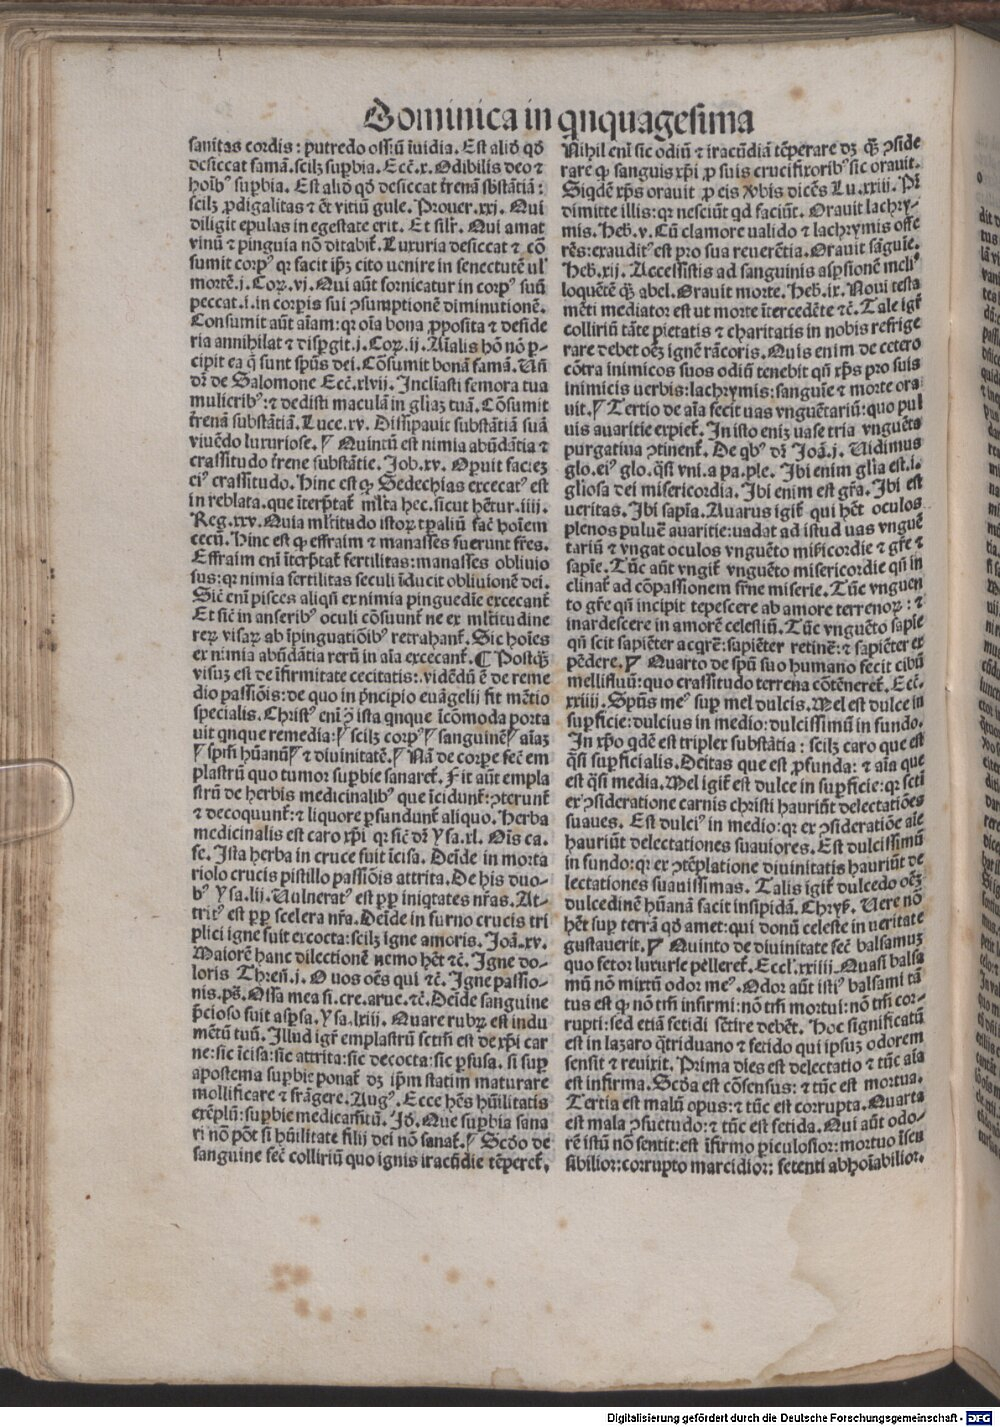 Dominica in qnquagesima
sanitas cordis : putredo ossiū īuidia. Est aliđ qđ
desiccat famā. scilꝫ suꝑbia. Ecc̄. x. Odibilis deo ⁊
hoībꝰ suꝑbia. Est aliđ qđ desiccat t̄renā sb̄stātiā :
scilꝫ ꝓdigalitas ⁊ ēt vitiū gule. Prouer. xxj. Qui
diligit epulas in egestate erit. Et silr̄. Qui amat
vinū ⁊ pinguia nō ditabit̄. Luxuria desiccat ⁊ cō
sumit corpꝰ qꝛ facit ip̄ꝫ cito uenire in senectutē ul̓
mortē. j. Coꝝ. vj. Qui aūt fornicatur in corpꝰ suū
peccat. i. in corꝑis sui ꝯsumptionē diminutionē.
Consumit aūt aīam : qꝛ oīa bona ꝓposita ⁊ deside
ria annihilat ⁊ disꝑgit. j. Coꝝ. ij. Aīalis hō nō ꝑ-
cipit ea q̄ sunt sp̄us dei. Cōsumit bonā famā. Un̄
dr̄ de Salomone Ecc̄. xlvij. Inclīasti femora tua
mulieribꝰ : ⁊ dedisti maculā in gliaꝫ tuā. Cōsumit
t̄renā substātiā. Luce. xv. Dissipauit substātiā suā
viuēdo luxuriose. ⸿ Quintū est nimia abūdātia ⁊
crassitudo t̄rene substātie. Job. xv. Oꝑuit facieꝫ
eiꝰ crassitudo. Hinc est qꝙ Sedechias excecatꝰ est
in reblata. que īterp̄tat̄ ml̓ta hec. sicut hētur. iiij.
Reg. xxv. Quia ml̓titudo istoꝝ tp̄aliū fac̄ hoīem
cecū. Hinc est qꝙ effraim ⁊ manasses fuerunt fr̄es.
Effraim enī īterp̄tat̄ fertilitas : manasses obliuio
sus : qꝛ nimia fertilitas seculi īducit obliuionē dei.
Sic̄ enī pisces aliqn̄ ex nimia pinguedīe excecant̄
Et sic̄ in anseribꝰ oculi cōsuunt̄ ne ex ml̓titudine
reꝝ visaꝝ ab īpinguatiōibꝰ retrahant̄. Sic hoīes
ex nimia abūdātia rerū in aīa excecant̄. ¶ Postqꝫ̄
visuꝫ est de īfirmitate cecitatis : vidēdū ē de reme
dio passiōis : de quo in pr̄incipio euāgelij fit mētio
specialis. Christꝰ enī ꝯ̄ ista qnque īcōmoda porta
uit qnque remedia : ⸿ scilꝫ corpꝰ ⸿ sanguinē ⸿ aīaꝫ
⸿ spm̄ hūanū ⸿ ⁊ diuinitatē. ⸿ Nā de corꝑe fec̄ em
plastrū quo tumor suꝑbie sanaret̄. Fit aūt empla
strū de herbis medicinalibꝰ que īcidunt̄ : ꝯterunt̄
⁊ decoquunt̄ : ⁊ liquore ꝑfundunt̄ aliquo. Herba
medicinalis est caro xp̄i qꝛ sic̄ dr̄ Ysa. xl. Oīs ca.
fe. Ista herba in cruce fuit īcisa. Deīde in morta
riolo crucis pistillo passiōis attrita. De his duo-
bꝰ Ysa. lii. Uulneratꝰ est ꝓp̄ iniqtates nr̄as. At-
tritꝰ est ꝓp̄ scelera nr̄a. Deīde in furno crucis tri
plici igne fuit excocta : scilꝫ igne amoris. Joā. xv.
Maiorē hanc dilectionē nemo hēt ⁊c̄. Igne do-
loris Thren̄. j. O uos oēs qui ⁊c̄. Igne passio-
nis. ps̄. Ossa mea si. cre. arue. ⁊c̄. Deīde sanguine
p̄cioso fuit asꝑsa. Ysa. lxiii. Quare rubꝝ est indu
mētū tuū. Illud igr̄ emplastrū fctm̄ est de xp̄i car
ne : sic īcisa : sic attrita : sic decocta : sic ꝑfusa. si suꝑ
apostema suꝑbie ponat̄ dꝫ ip̄m statim maturare
mollificare ⁊ frāgere. Augꝰ. Ecce hēs hūilitatis
exēplū : suꝑbie medicam̄tū. Id̄. Que suꝑbia sana
ri nō pōt si hūilitate filij dei nō sanat̄. ⸿ Scđo de
sanguine fec̄ colliriū quo ignis iracūdie tēꝑeret̄.
Nihil enī sic odiū ⁊ iracūdiā tēperare dꝫ qꝫ̄ ꝯside
rare qꝙ sanguis xp̄i ꝓ suis crucifixoribꝰ sic orauit.
Siqdē xp̄s orauit ꝓ eis v̓bis dicēs Lu. xxiij. Pr̄
dimitte illis : qꝛ nesciūt qd faciūt. Orauit lachry-
mis. Heb. v. Cū clamore ualido ⁊ lachrymis offe
rēs : exauditꝰ est pro sua reuerētia. Orauit sāguīe.
Heb. xij. Accessistis ad sanguinis asꝑsionē meliꝰ
loquētē qꝫ̄ abel. Orauit morte. Heb. ix. Noui testa
mēti mediator est ut morte ītercedēte ⁊c̄. Tale igr̄
colliriū tāte pietatis ⁊ charitatis in nobis refrige
rare debet oēꝫ ignē rācoris. Quis enim de cetero
cōtra inimicos suos odiū tenebit qn̄ xp̄s pro suis
inimicis uerbis : lachrymis : sanguīe ⁊ morte ora
uit. ⸿ Tertio de aīa fecit uas vnguētariū : quo pul
uis auaritie expiet̄. In isto enīꝫ uase tria vnguēta
purgatiua ꝯtinent̄. De qbꝰ dr̄ Joā. j. Uidimus
glo. eiꝰ glo. q̄si vni. a pa. ple. Ibi enim gl̄ia est. i.
gliosa dei misericordia. Ibi enim est gr̄a. Ibi est
ueritas. Ibi sapīa. Auarus igit̄ qui hēt oculos
plenos puluē auaritie : uadat ad istud uas vnguē
tariū ⁊ vngat oculos vnguēto mīsicordie ⁊ gr̄e ⁊
sapīe. Tūc aūt vngit̄ vnguēto misericordie qn̄ in
clinat̄ ad cōpassionem fr̄ne miserie. Tūc vnguen
to gr̄e qn̄ incipit tepescere ab amore terrenoꝝ : ⁊
inardescere in amorē celestiū. Tūc vnguēto sapīe
qn̄ scit sapiēter acqrēr̄ : sapiēter retinēr̄ : ⁊ sapiēter ex
pēdere. ⸿ Quarto de spū suo humano fecit cibū
mellifluū : quo crassitudo terrena cōtēneret̄. Ecc̄.
xxiiij. Spūs meꝰ suꝑ mel dulcis. Mel est dulce in
suꝑficie : dulcius in medio : dulcissimū in fundo.
In xp̄o qdē est triplex substātia : scilꝫ caro que est
q̄si suꝑficialis. Deitas que est ꝓfunda : ⁊ aīa que
est q̄si media. Mel igit̄ est dulce in suꝑficie : qꝛ scti
ex ꝯsideratione carnis christi hauriūt delectatiōes
suaues. Est dulciꝰ in medio : qꝛ ex ꝯsideratiōe aīe
hauriūt delectationes suauiores. Est dulcissimū
in fundo : qꝛ ex ꝯtēplatione diuinitatis hauriūt de
lectationes suauissimas. Talis igit̄ dulcedo oēꝫ
dulcedinē hūanā facit insipidā. Chryẜ. Uere nō
hēt suꝑ terrā qđ amet : qui donū celeste in ueritate
gustauerit. ⸿ Quinto de diuinitate fec̄ balsamuꝫ
quo fetor luxurie pelleret̄. Eccl̓. xxiiij. Quasi balsa
mū nō mixtū odor meꝰ. Odor aūt istiꝰ balsami tā
tus est qꝙ nō tm̄ infirmi : nō tm̄ mortui : nō tm̄ cor-
rupti : sed etiā fetidi sētire debēt. Hoc significatū
est in lazaro q̄triduano ⁊ fetido qui ipsuꝫ odorem
sensit ⁊ reuixit. Prima dies est delectatio ⁊ tūc aīa
est infirma. Scđa est cōsensus : ⁊ tūc est mortua.
Tertia est malū opus : ⁊ tūc est corrupta. Quarta
est mala ꝯsuetudo : ⁊ tūc est fetida. Qui aūt odo-
rē istū nō sentit : est īfirmo ꝑiculosior : mortuo īsen
sibilior : corrupto marcidior : fetenti abhoīabilior.
Digitalisierung gefördert durch die Deutsche Forschungsgemeinschaft - DFG